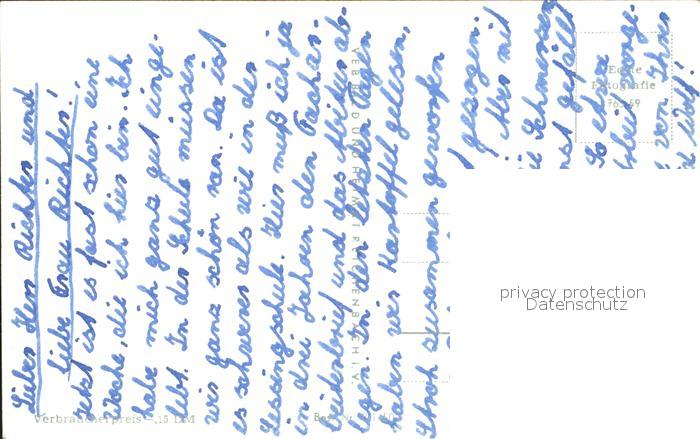 Lieber Herr Richter und
liebe Frau Richter!
Jetzt ist es fast schon eine
Woche, die ich hier bin. Ich
habe mich ganz gut einge-
lebt. In der Schule müssen
wir ganz schön ran. Da ist
es schwerer als wie in der
Lessingschule. Hier muß ich ja
in drei Jahren den Fachar-
beiterbrief und das Abitur ab-
legen. In den letzten Tagen
haben wir Kartoffel gelesen,
Stroh zusammen geworfen
gesungen.
Aber mit
die Schmerzen
gefällt
So etwa
von Ihrer
Verbraucherpreis -,15 DM
Echte
Fotografie
privacy protection
Datenschutz